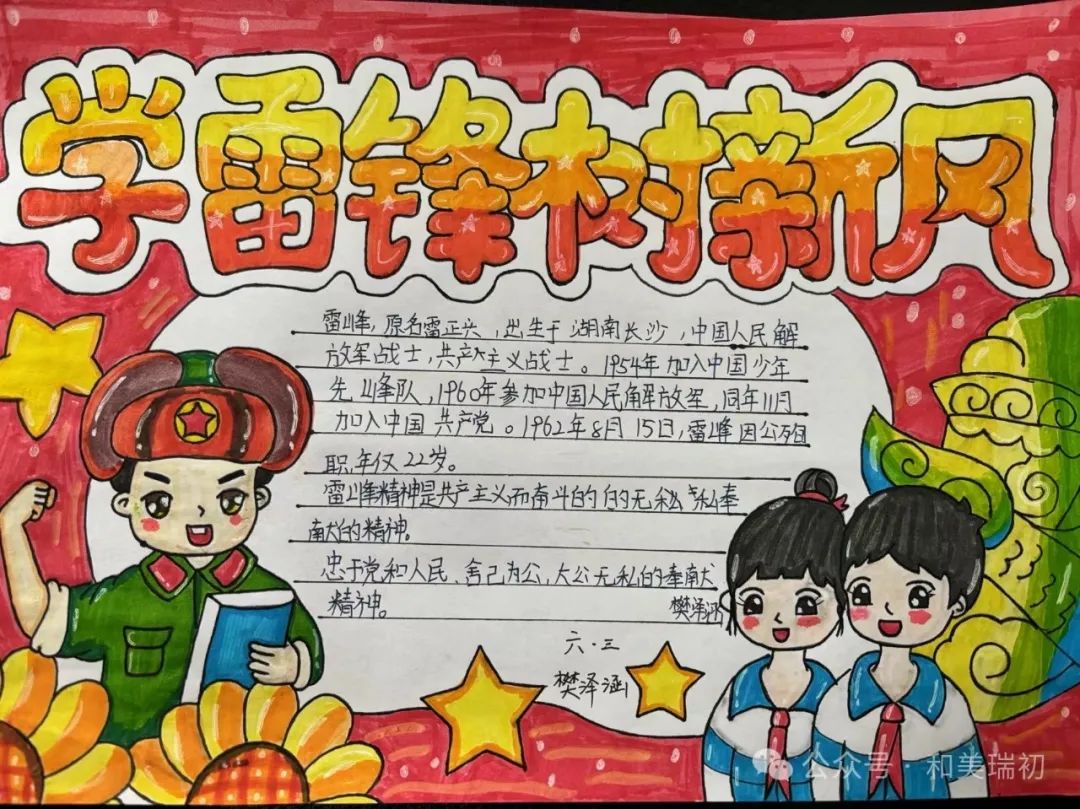 学雷锋树新风
雷峰，原名雷正兴，出生于湖南长沙，中国人民解
放军战士，共产主义战士。1954年加入中国少年
先峰队，1960年参加中国人民解放军，同年11月
加入中国共产党。1962年8月15日，雷峰因公殉
职，年仅22岁。
雷峰精神是共产主义而奋斗的的无私奉
献的精神。
忠于党和人民，舍己为公，大公无私的奉献
精神。 樊泽涵
六·三
樊泽涵
公众号·和美瑞初